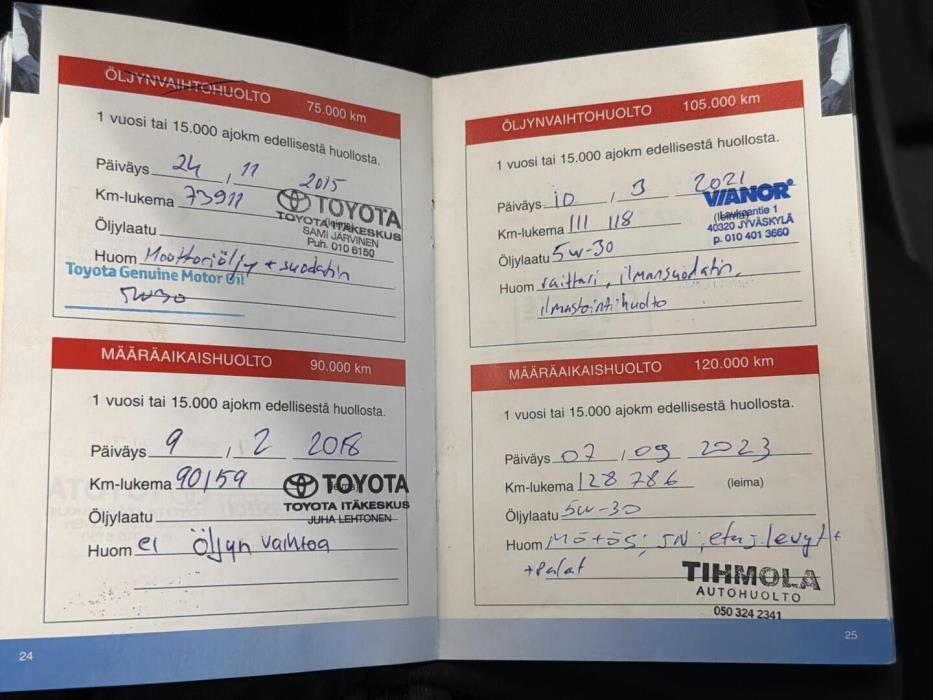 ÖLJYNVAIHTOHUOLTO 75.000 km
1 vuosi tai 15.000 ajokm edellisestä huollosta.
Päiväys 24 , 11 2015
Km-lukema 73911
TOYOTA
TOYOTA ITÄKESKUS
SAMI JÄRVINEN
Puh. 010 6150
Öljylaatu
Huom Moottoriöljy + suodatin
Toyota Genuine Motor Oil
5W30
MÄÄRÄAIKAISHUOLTO 90.000 km
1 vuosi tai 15.000 ajokm edellisestä huollosta.
Päiväys 9 , 2 2018
Km-lukema 90159
TOYOTA
TOYOTA ITÄKESKUS
JUHA LEHTONEN
Öljylaatu
Huom ei öljyn vaihtoa
24
ÖLJYNVAIHTOHUOLTO 105.000 km
1 vuosi tai 15.000 ajokm edellisestä huollosta.
Päiväys 10 , 3 2021
VIANOR
(leima)
40320 JYVÄSKYLÄ
p. 010 401 3660
Km-lukema 111 118
Öljylaatu 5w-30
Huom raitturi, ilmansuodatin,
ilmastointihuolto
MÄÄRÄAIKAISHUOLTO 120.000 km
1 vuosi tai 15.000 ajokm edellisestä huollosta.
Päiväys 07 , 09 2023
Km-lukema 128 786 (leima)
Öljylaatu 5w-30
Huom Mö+ös; JN; etuj levyt +
+palat
TIHMOLA
AUTOHUOLTO
050 324 2341
25